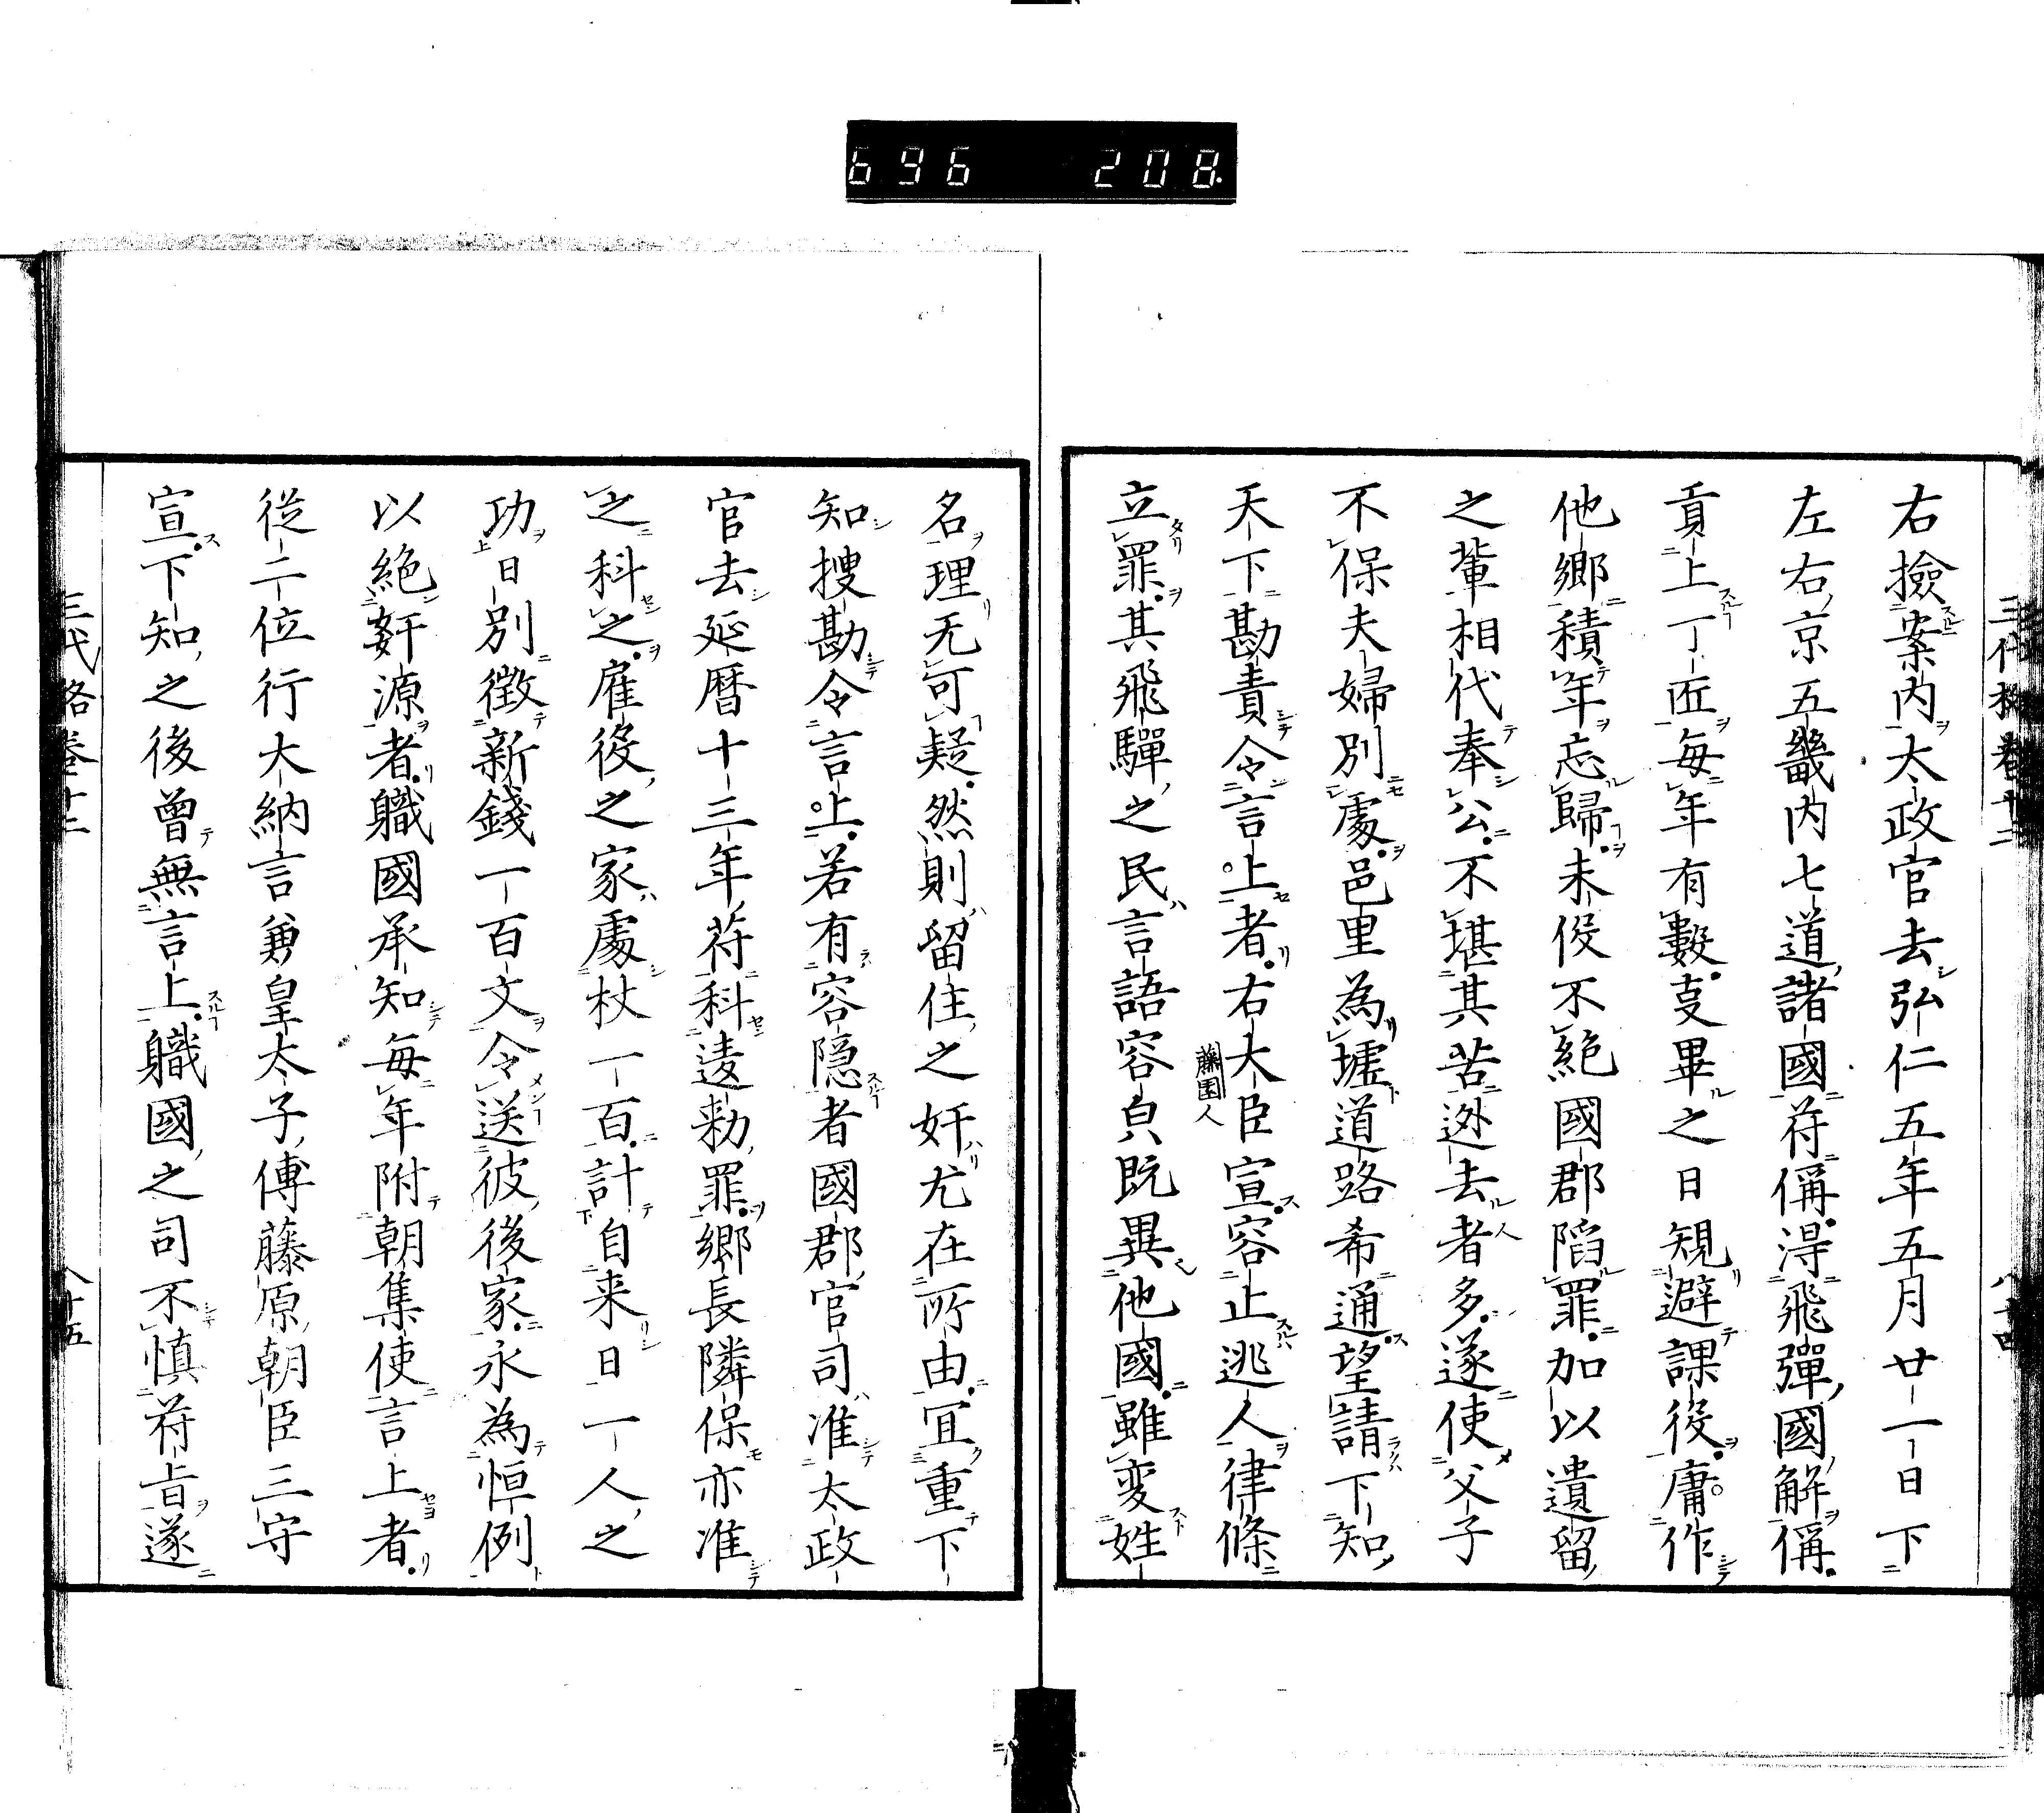 696 208
三代格卷十二 八十四
右撿案内太政官去弘仁五年五月廿一日下
左右京五畿内七道諸國符偁得飛彈國解偁
貢上丁匠毎年有數㕝畢之日規避課役庸作
他鄉積年忘歸未役不絶國郡陷罪加以遺留
之輩相代奉公不堪其苦逃去者多遂使父子
不保夫婦別處邑里為墟道路希通望請下知
天下勘責令言上者右大臣宣容止逃人律條
藤園人
立罪其飛騨之民言語容皃既異他國雖変姓
名理无可疑然則留住之奸尤在所由冝重下
知搜勘令言上若有容隠者國郡官司准太政
官去延暦十三年符科違勅罪鄉長隣保亦准
之科之雇役之家處杖一百計自来日一人之
功日別徴新錢一百文令送彼後家永為恒例
以絶姧源者職國承知毎年附朝集使言上者
從二位行大納言兼皇太子傳藤原朝臣三守
宣下知之後曾無言上職國之司不慎符旨遂
三代格卷十二 八十五